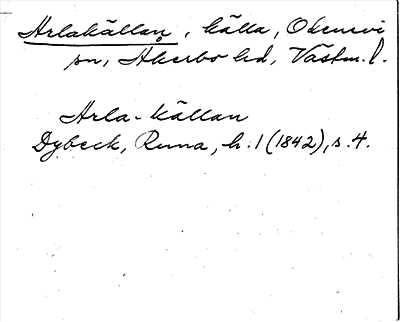 Arlakällan, källa, Odensvi
sn, Åkerbo hd, Västm. l.
Arla-källan
Dybeck, Runa, h. 1 (1842), s. 4.